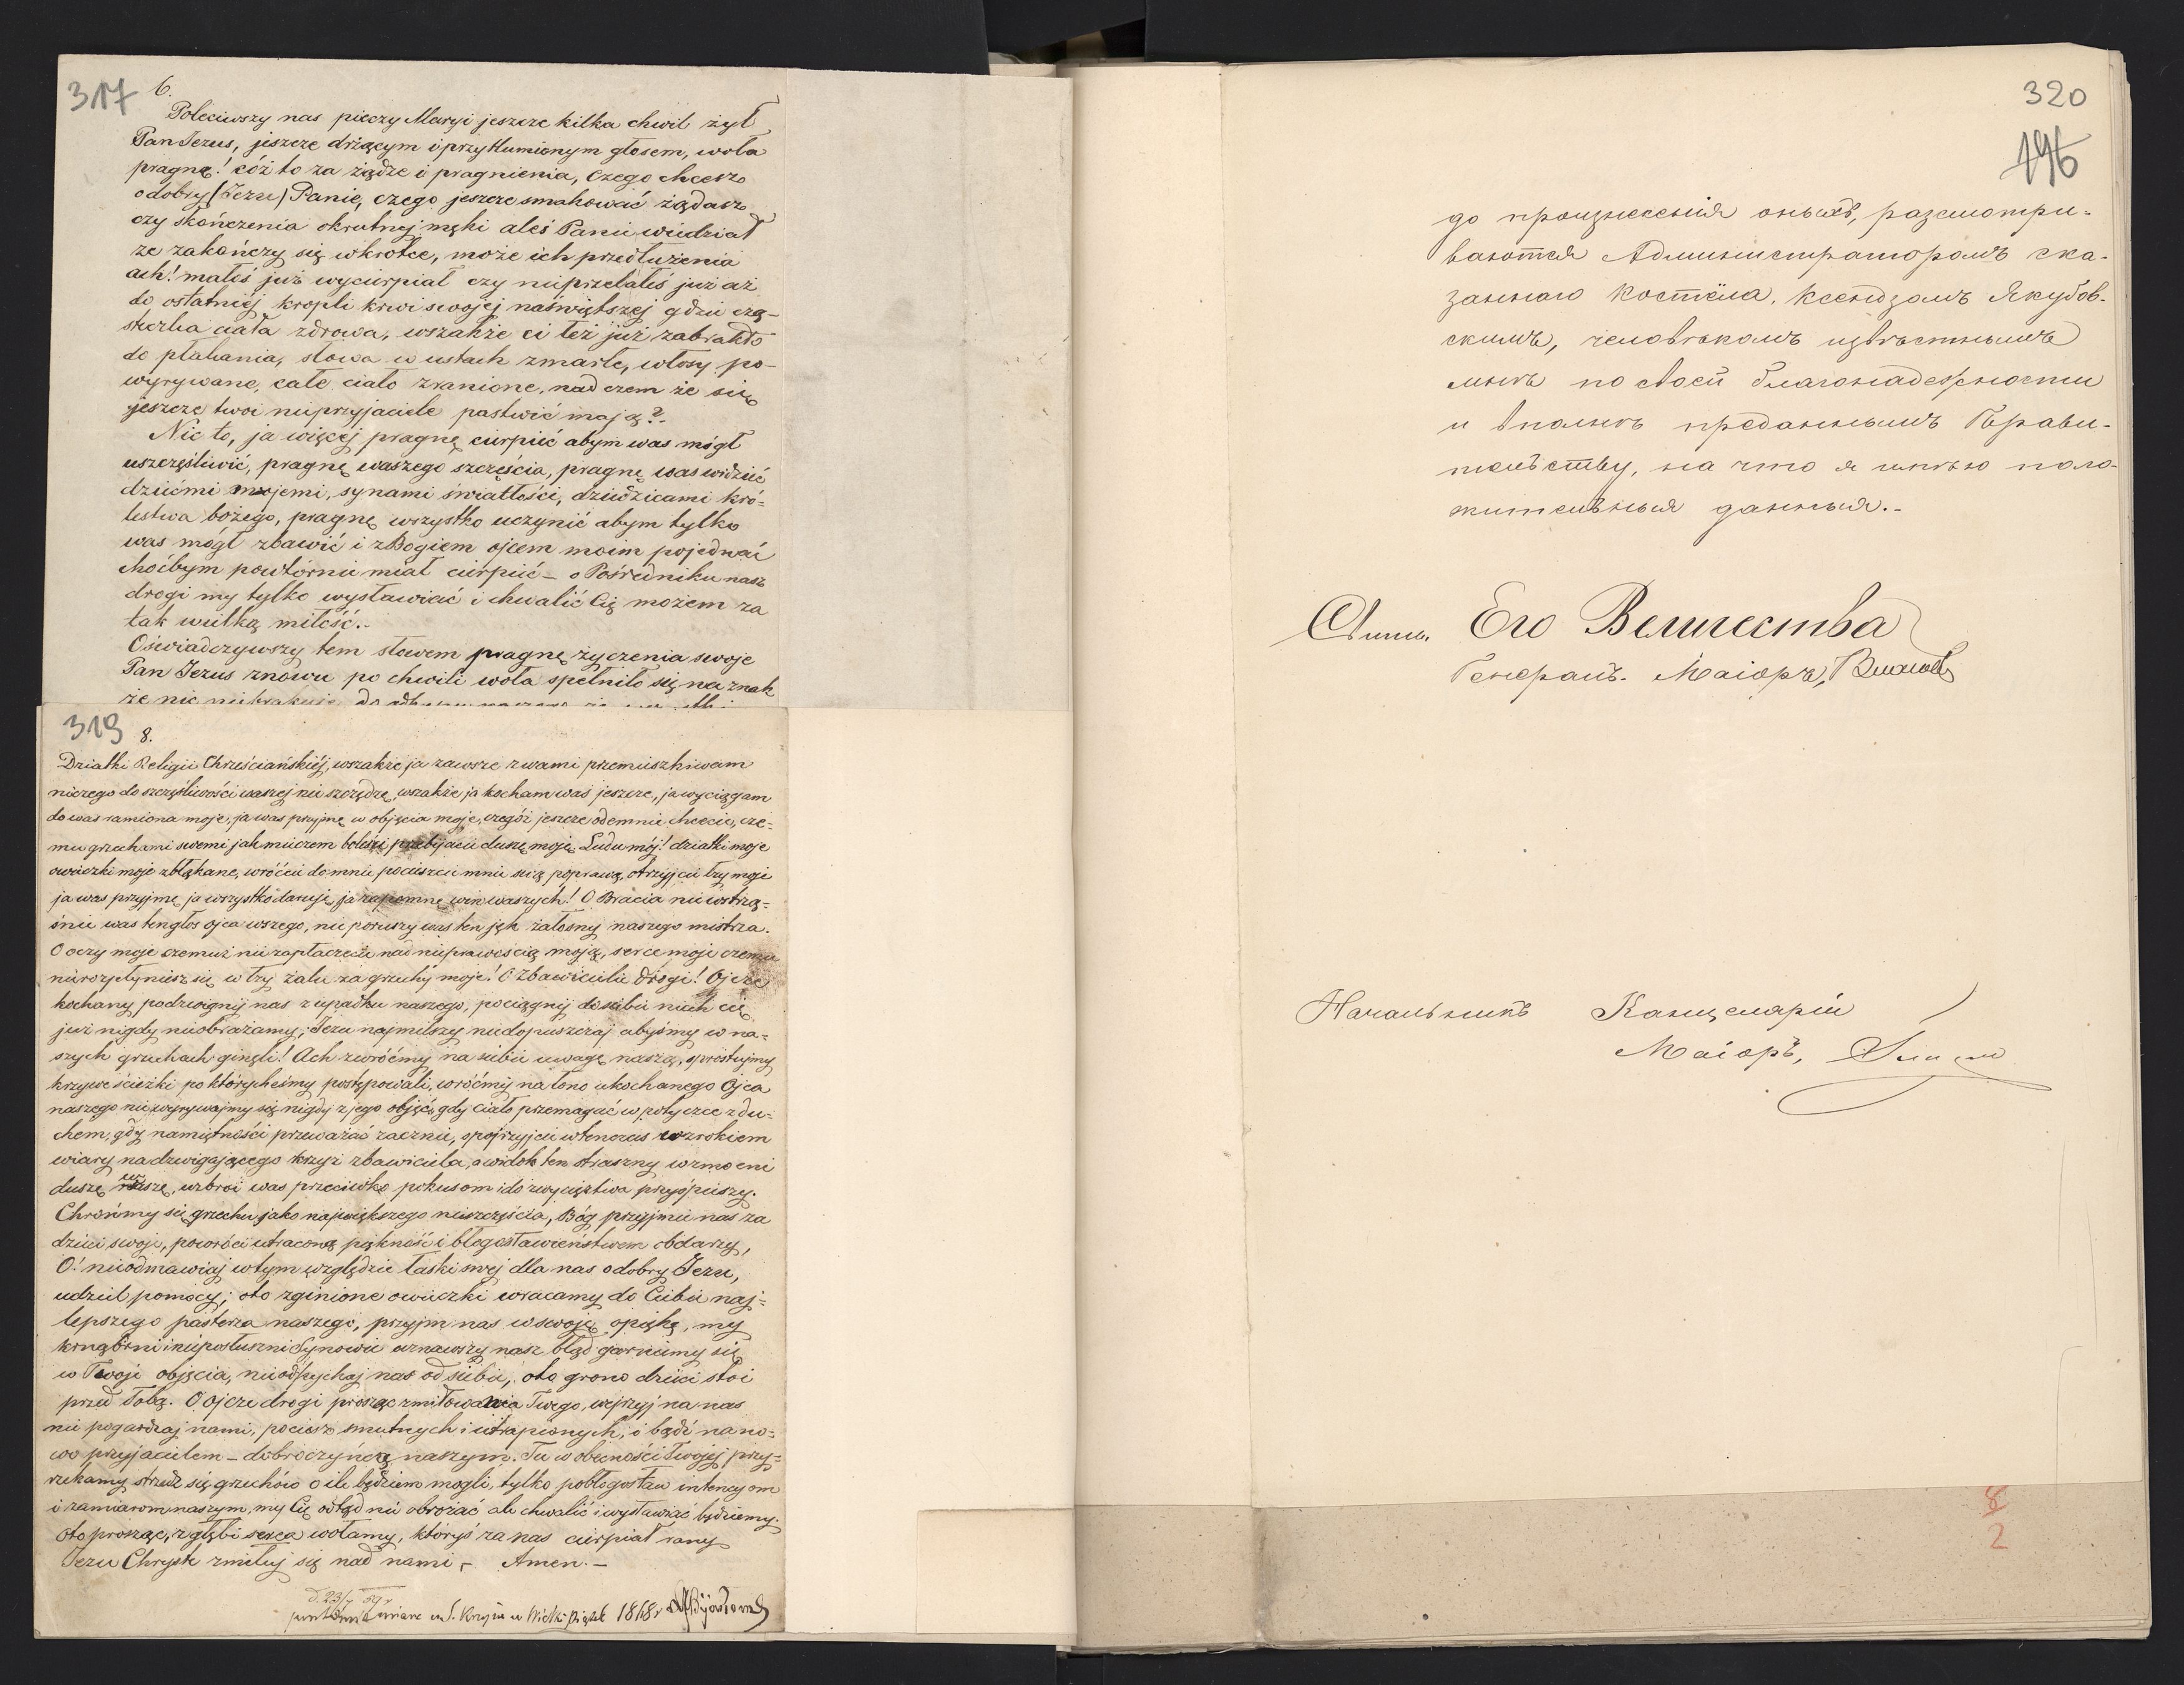 317
6.
Poleciwszy nas pieczy Maryi jeszcze kilka chwil żył
Pan Jezus, jeszcze drżącym i przytłumionym głosem, woła
pragnę! cóż to za żądze i pragnienia, czego chcesz
o dobry (Jezu) Panie, czego jeszcze smakować żądasz
czy skończenia okrutnej męki aleś Panie wiedział
że zakończy się wkrotce, może ich przedłużenia
ach! małeś już wycierpiał czy nieprzelałeś już aż
do ostatniéj kropli krwi swojej naświętszej gdzie czą-
steczka ciała zdrowa, wszakże ci łez już zabrakło
do płakania, słowa w ustach zmarłe, włosy po-
wyrywane, całe ciało zranione, nad czem że się
jeszcze twoi nieprzyjaciele pastwić mają?-
Nic to, ja więcej pragnę cierpieć abym was mógł
uszczęśliwić, pragnę waszego szczęścia, pragnę was widzieć
dziećmi mojemi, synami światłości, dziedzicami kró=
lestwa bożego, pragnę wszystko uczynić abym tylko
was mógł zbawić i z Bogiem ojcem moim pojednać
choćbym powtórnie miał cierpieć - o Pośredniku nasz
drogi my tylko wysławiać i chwalić Cię możem za
tak wielką miłość.-
Oświadczywszy tem słowem pragnę życzenia swoje
Pan Jezus znowu po chwili woła spełniło się na znak
że nic niebrakuje do
319
8.
Dziatki Religii Chrześciańskiéj, wszakże ja zawsze z wami przemieszkiwam
niczego do szczęśliwości waszej nie szczędzę, wszakże ja kocham was jeszcze, ja wyciągam
do was ramiona moje, ja was przyjmę w objęcia moje, czegóż jeszcze odemnie chcecie, cze-
mu grzechami swemi jak mieczem boleści przebijacie duszę moję. Ludu mój! dziatki moje
owieczki moje zbłąkane, wróćcie do mnie pocieszcie mnie swą poprawą, otrzyjcie łzy moje
ja was przyjmę, ja wszystko daruję, ja zapomnę win waszych! O Bracia nie wstrzą=
śnie was ten głos ojca wszego, nie poruszy was ten jęk żałosny naszego mistrza.
O oczy moje czemuż nie zapłaczecie nad nieprawością moją, serce moje czemu
nierozpłyniesz się w łzy żalu za grzechy moje! O Zbawicielu drogi! Ojcze
kochany podzwignij nas z upadku naszego, pociągnij do siebie niech cię
już nigdy nieobrażamy, Jezu najmilszy niedopuszczaj abyśmy w na=
szych grzechach ginęli! Ach zwróćmy na siebie uwagę naszą, sprostujmy
krzywe ścieżki po którycheśmy postępowali, wróćmy na łono ukochanego Ojca
naszego nie wyrywajmy się nigdy z jego objęć, gdy ciało przemagać w potyczce z du-
chem, gdy namiętności przeważać zacznie, spojrzyjcie wtenczas wzrokiem
wiary na dzwigającego krzyż zbawiciela, a widok ten straszny wzmocni
duszę waszę, uzbroi was przeciwko pokusom i do zwycięztwa przyśpieszy.
Chrońmy się grzechu jako największego nieszczęścia, Bóg przyjmie nas za
dzieci swoje, powróci utraconą piękność i błogosławieństwem obdarzy,
O! nieodmawiaj w tym względzie łaski swej dla nas o dobry Jezu,
udziel pomocy; oto zginione owieczki wracamy do Ciebie naj=
lepszego pasterza naszego, przyjm nas w swoję opiekę, my
krnąbrni i nieposłuszni Synowie uznawszy nasz błąd garniemy się
w Twoje objęcia, nieodpychaj nas od siebie, oto grono dzieci stoi
przed Tobą. O Ojcze drogi prosząc zmiłowania Twego, wejrzyj na nas
nie pogardzaj nami, pociesz smutnych i utrapionych, i bądź na no-
wo przyjacielem - dobroczyńcą naszym. Tu w obecności Twojej przy=
rzekamy strzedz się grzechów o ile będziem mogli, tylko pobłogosław intencyom
i zamiarom naszym, my Cię odtąd nie obrażać ale chwalić i wysławiać będziemy.
oto prosząc, z głębi serca wołamy, któryś za nas cierpiał rany
Jezu Chryste zmiłuj się nad nami, - Amen. -
d. 23/4 59 r
w S. Krzyżu w Wielki Piątek 1868 r
320
196
до произнесенія оныхъ, разсмотри-
ваются Администраторомъ ска-
заннаго костёла, ксендзомъ Якубов-
скимъ, человѣкомъ извѣстнымъ
мнѣ по своей благонадежности
и вполнѣ преданнымъ Прави-
тельству, на что я имѣю поло-
жительныя данныя.-
Свиты Его Величества
Генералъ-Маіоръ,
Начальникъ Канцеляріи
Маіоръ,
8
2